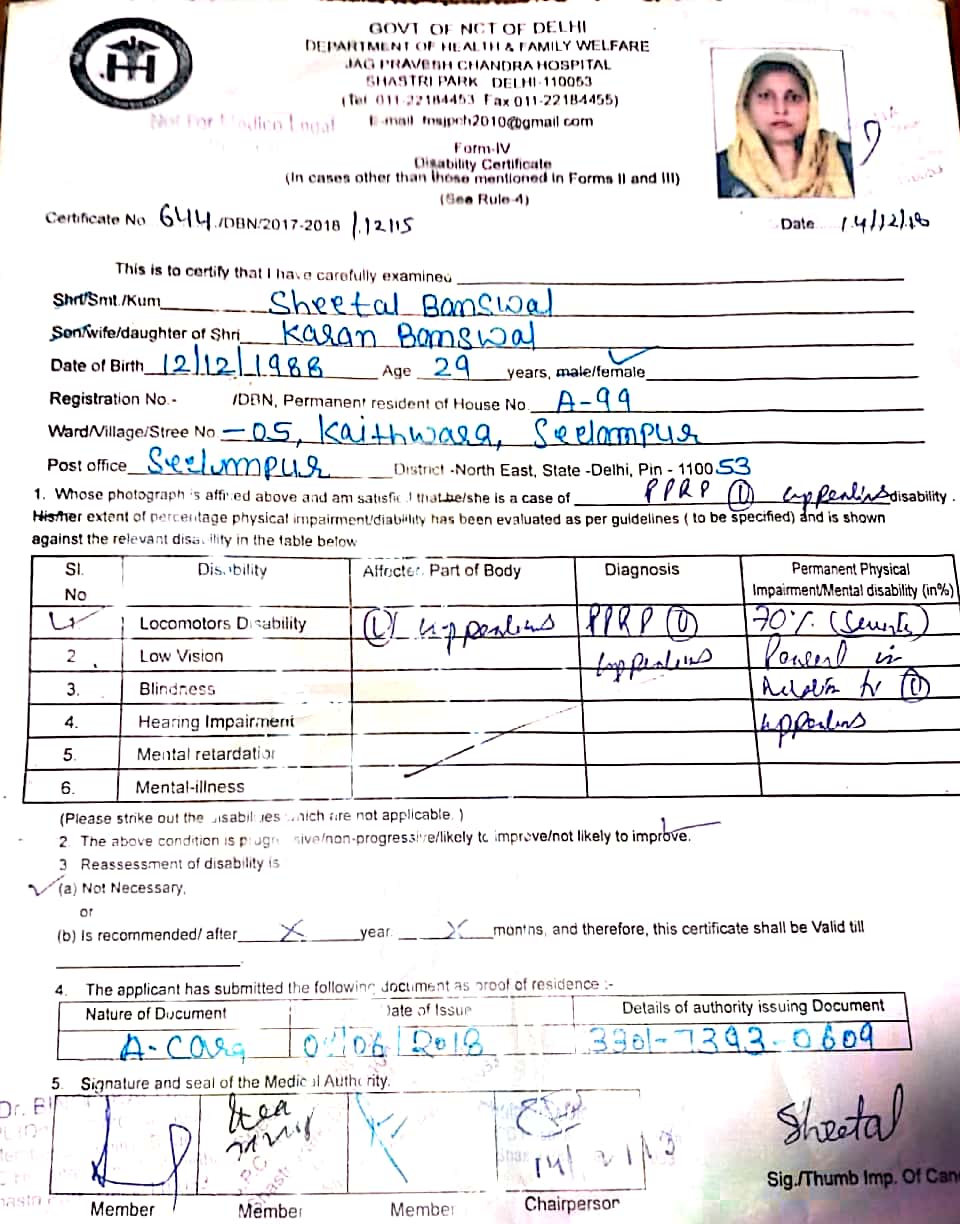 GOVT OF NCT OF DELHI
DEPARTMENT OF HEALTH & FAMILY WELFARE
JAG PRAVESH CHANDRA HOSPITAL
SHASTRI PARK DELHI-110053
(Tel 011-22184453 Fax 011-22184455)
Not For Medico Legal E-mail msjpch2010@gmail com
Form-IV
Disability Certificate
(In cases other than those mentioned in Forms II and III)
(See Rule-4)
Certificate No 644 /DBN/2017-2018 /12115 Date 14/12/18
This is to certify that I have carefully examined
Shri/Smt./Kum Sheetal Banswal
Son/wife/daughter of Shri Karan Banswal
Date of Birth 12/12/1988 Age 29 years, male/female
Registration No.- /DBN, Permanent resident of House No. A-99
Ward/Village/Stree No -05, Kaithwara, Seelampur
Post office Seelampur District -North East, State -Delhi, Pin - 110053
1. Whose photograph is affixed above and am satisfied that he/she is a case of PPRP (L) disability .
His/her extent of percentage physical impairment/diability has been evaluated as per guidelines ( to be specified) and is shown
against the relevant disability in the table below
Sl. No Disability Affected Part of Body Diagnosis Permanent Physical Impairment/Mental disability (in%)
Locomotors Disability (L) PPRP (L) 70%
2 Low Vision in
3. Blindness to (L)
4. Hearing Impairment
5. Mental retardation
6. Mental-illness
(Please strike out the disabilities which are not applicable. )
2. The above condition is progressive/non-progressive/likely to improve/not likely to improve.
3 Reassessment of disability is
(a) Not Necessary,
or
(b) Is recommended/ after X year X months, and therefore, this certificate shall be Valid till
4. The applicant has submitted the following document as proof of residence :-
Nature of Document Date of Issue Details of authority issuing Document
A-Card /06/2018 3301-7393-0609
5. Signature and seal of the Medical Authority.
Dr.
Sheetal
Sig./Thumb Imp. Of Can
Member Member Member Chairperson